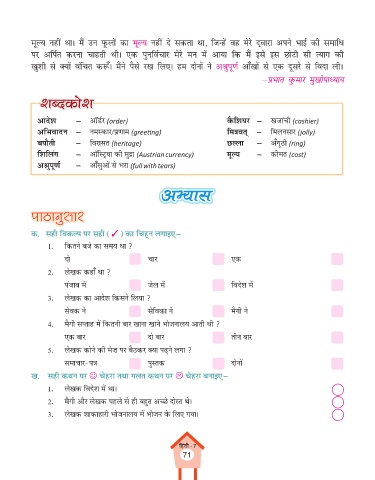 मूल्य नहीं था। मैं उन फूलों का मूल्य नहीं दे सकता था, जिन्हें वह मेरे द्वारा अपने भाई की समाधि
पर अर्पित करना चाहती थी। एक पुनर्विचार मेरे मन में आया कि मैं इसे इस छोटी सी त्याग की
खुशी से क्यों वंचित करूँ। मैंने पैसे रख लिए। हम दोनों ने अश्रुपूर्ण आँखों से एक दूसरे से विदा ली।
–प्रभात कुमार मुखोपाध्याय
शब्दकोश
आदेश – ऑर्डर (order) कैशियर – खजांची (cashier)
अभिवादन – नमस्कार/प्रणाम (greeting) मित्रवत् – मिलनसार (jolly)
बपौती – विरासत (heritage) छल्ला – अँगूठी (ring)
शिलिंग – ऑस्ट्रिया की मुद्रा (Austrian currency) मूल्य – कीमत (cost)
अश्रुपूर्ण – आँसुओं से भरा (full with tears)
अभ्यास
पाठानुसार
क. सही विकल्प पर सही (✓) का चिह्न लगाइए–
1. कितने बजे का समय था ?
दो चार एक
2. लेखक कहाँ था ?
पंजाब में जेल में विदेश में
3. लेखक का आदेश किसने लिया ?
सेवक ने सेविका ने मैगी ने
4. मैगी सप्ताह में कितनी बार खाना खाने भोजनालय आती थी ?
एक बार दो बार तीन बार
5. लेखक कोने की मेज़ पर बैठकर क्या पढ़ने लगा ?
समाचार-पत्र पुस्तक दोनों
ख. सही कथन पर ☺ चेहरा तथा गलत कथन पर ☹ चेहरा बनाइए–
1. लेखक विदेश में था।
2. मैगी और लेखक पहले से ही बहुत अच्छे दोस्त थे।
3. लेखक शाकाहारी भोजनालय में भोजन के लिए गया।
हिंदी-7
71